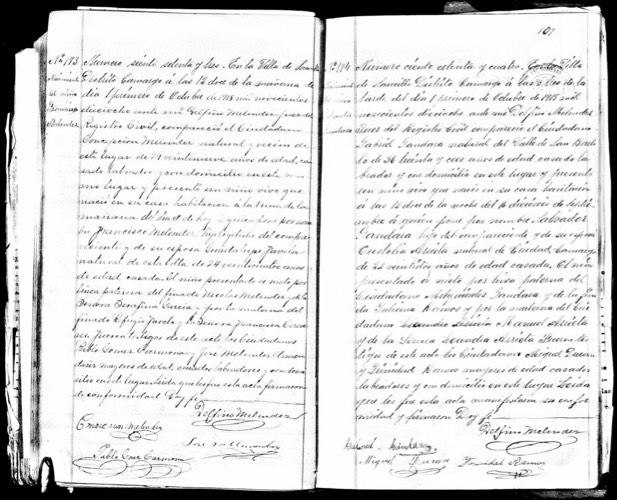 No 173
Nacimiento
del niño
Francisco
Melendez
Numero siento setenta y tres. En la Villa de
Distrito Camargo á las 12 doce de la mañana de
dia 1 primero de Octubre de 1918 mil novecientos
dieciocho ante mi Delfino Melendez Juez del
Registro Civil, compareció el Ciudadano
Concepcion Melendez natural y vecino de
este lugar de 29 veintinueve años de edad, ca
sado labrador y con domicilio en este mis
mo lugar y presentó un niño vivo que
nació en su casa habitación á la una de la
mañana del de hoy á quien pone por nom
bre Francisco Melendez hijo legitimo del compa
reciente y de su esposa Guadalupe Favela
natural de esta villa de 24 veinticuatro años
de edad casada. El niño presentado es nieto por
linea paterna del finado Nicolas Melendez y de la
Señora Serafina Garcia y por la materna del
finado Refugio Favela y la Señora Francisca
Fueron testigos de este acto los Ciudadanos
Pablo Gomez Carmona y José Melendez
mayores de edad, casados labradores y con domi
cilio en el lugar. Leida que les fue esta acta firmaron
de conformidad. Doy fe
Delfino Melendez
Melendez
Pablo Carmona
107
No 174
Numero ciento setenta y cuatro. Villa
de Saucillo Distrito Camargo á las 3 tres de la
tarde del dia 1 primero de Octubre de 1918 mil
novecientos dieciocho ante mi Delfino Melendez
Juez del Registro Civil compareció el Ciudadano
Gabriel Gandara natural del Valle de San Barto
lo de 36 treinta y seis años de edad casado la
brador y con domicilio en este lugar y presentó
un niño vivo que nació en su casa habitacion
á las de la noche del 16 dieciseis de Septi
embre á quien pone por nombre Salvador
Gandara hijo del compareciente y de su esposa
Custodia Arrieta natural de Ciudad Camargo
de 22 veintidos años de edad casada. El niño
presentado es nieto por linea paterna del
Ciudadano Gandara y de la fina
da Ramos y por la materna del Ciu
dadano Manuel Arrieta
y de la Señora Arrieta Fueron tes
tigos de este acto los Ciudadanos Miguel Duran
y Trinidad Ramos mayores de edad casados
labradores y con domicilio en este lugar. Leida
que les fue esta acta manifestaron su confor
midad y firmaron Doy fe
Delfino Melendez
Gandara
Miguel Duran Trinidad Ramos